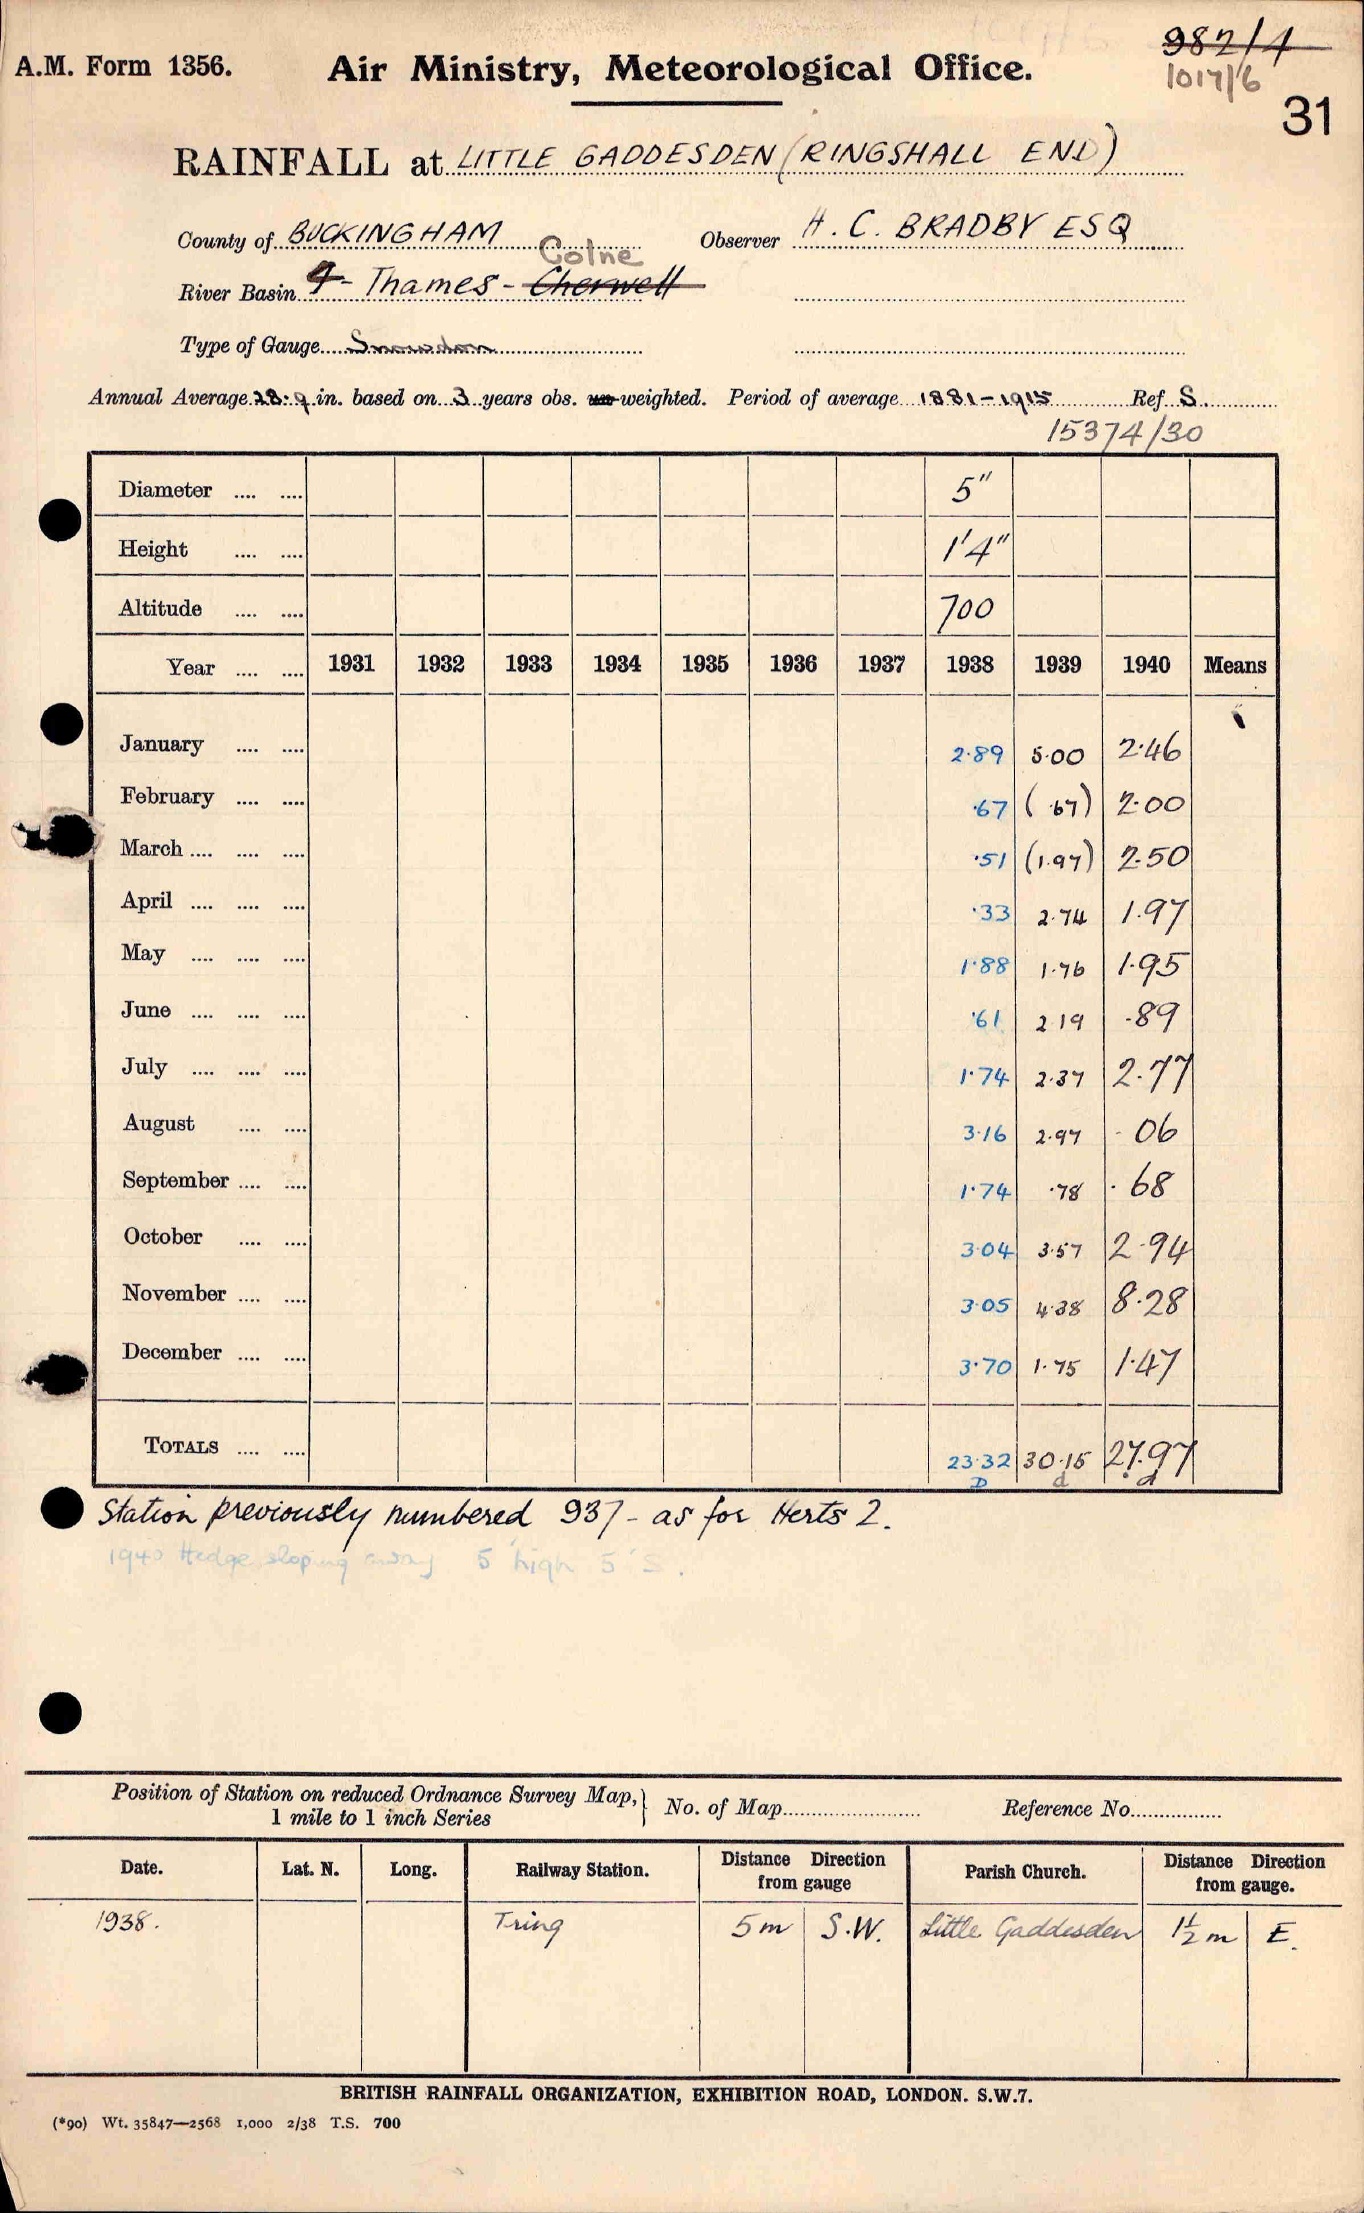 982/4
A.M. Form 1356. Air Ministry, Meteorological Office.
1017/6
31
RAINFALL at LITTLE GADDESDEN (RINGSHALL END)
County of BUCKINGHAM Observer H. C. BRADBY ESQ
Colne
River Basin 9 - Thames - Cherwell
Type of Gauge Snowdon
Annual Average 28.9 in. based on 3 years obs. weighted. Period of average 1881-1915 Ref S.
15374/30
Diameter .... .... 5"
Height .... .... 1'4"
Altitude .... .... 700
Year .... .... 1931 1932 1933 1934 1935 1936 1937 1938 1939 1940 Means
January .... .... 2.89 5.00 2.46
February .... .... .67 (.67) 2.00
March .... .... .... .51 (1.97) 2.50
April .... .... .... .33 2.74 1.97
May .... .... .... 1.88 1.76 1.95
June .... .... .... .61 2.19 .89
July .... .... .... 1.74 2.37 2.77
August .... .... 3.16 2.97 .06
September .... .... 1.74 .78 .68
October .... .... 3.04 3.57 2.94
November .... .... 3.05 4.38 8.28
December .... .... 3.70 1.75 1.47
TOTALS .... .... 23.32 30.15 27.97
D d d
Station previously numbered 937 - as for Herts 2.
1940 Hedge sloping away 5' high 5' S.
Position of Station on reduced Ordnance Survey Map, 1 mile to 1 inch Series } No. of Map Reference No.
Date. Lat. N. Long. Railway Station. Distance Direction from gauge Parish Church. Distance Direction from gauge.
1938. Tring 5 m S.W. Little Gaddesden 1½ m E.
BRITISH RAINFALL ORGANIZATION, EXHIBITION ROAD, LONDON. S.W.7.
(*90) Wt. 35847—2568 1,000 2/38 T.S. 700